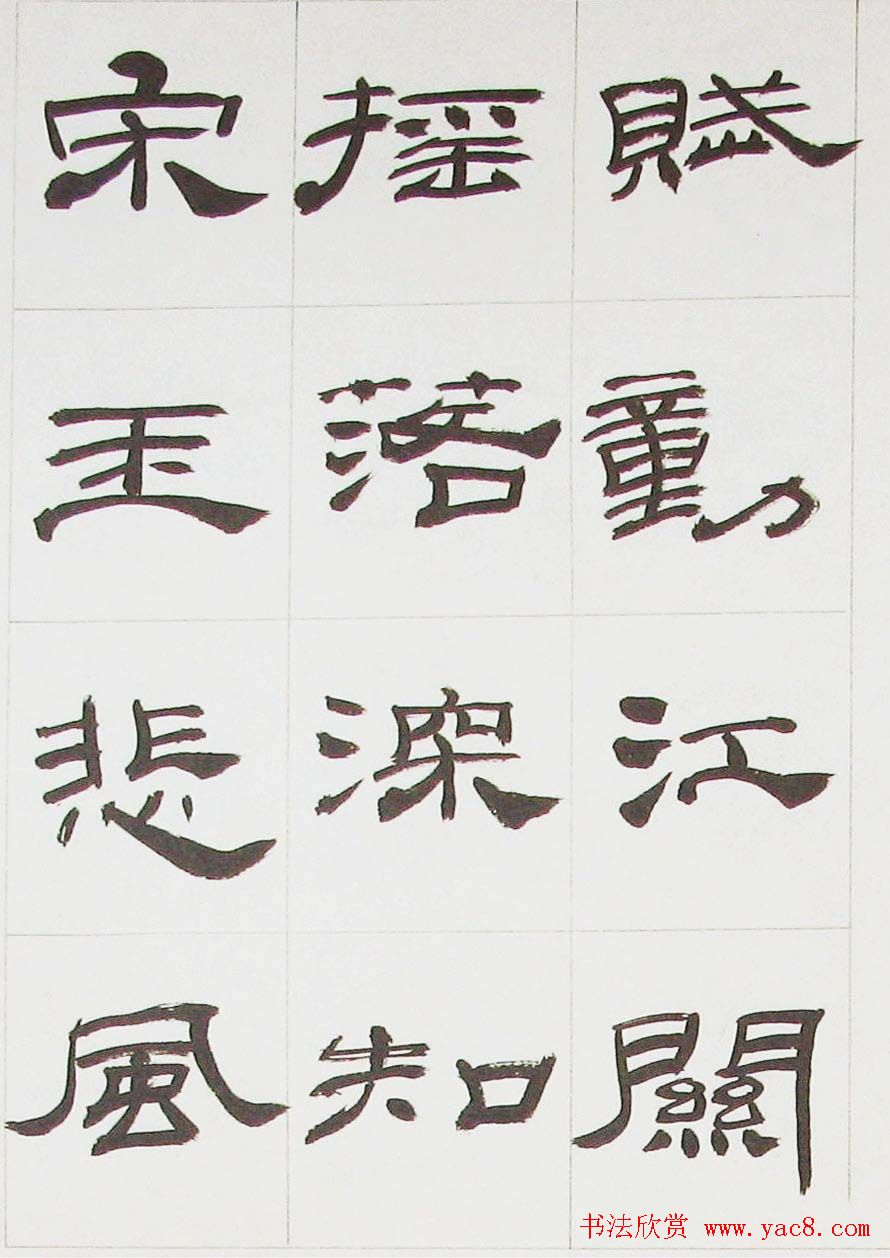 賦動江關
摇落深知
宋玉悲風
书法欣赏 www.yac8.com